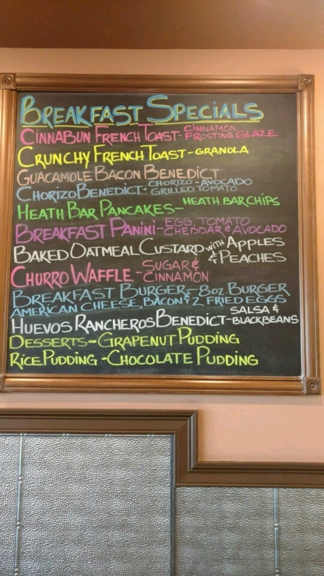 BREAKFAST SPECIALS
CINNABUN FRENCH TOAST - CINNAMON FROSTING GLAZE
CRUNCHY FRENCH TOAST - GRANOLA
GUACAMOLE BACON BENEDICT
CHORIZO BENEDICT - CHORIZO - AVOCADO GRILLED TOMATO
HEATH BAR PANCAKES - HEATH BAR CHIPS
BREAKFAST PANINI - EGG, TOMATO CHEDDAR & AVOCADO
BAKED OATMEAL CUSTARD WITH APPLES & PEACHES
CHURRO WAFFLE - SUGAR & CINNAMON
BREAKFAST BURGER - 8OZ BURGER
AMERICAN CHEESE, BACON & 2 FRIED EGGS
HUEVOS RANCHEROS BENEDICT - SALSA & BLACK BEANS
DESSERTS - GRAPENUT PUDDING
RICE PUDDING - CHOCOLATE PUDDING